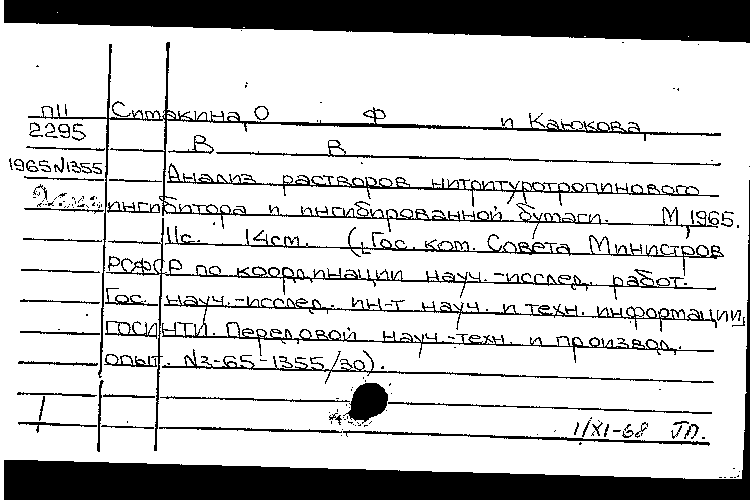 П11 Ситакина, О Ф и Каюкова,
2295 В В
1965 N1355 Анализ растворов нитритуротропинового
ингибитора и ингибированной бумаги. М, 1965.
11с. 14см. (Гос. ком. Совета Министров
РСФСР по координации науч.-исслед. работ.
Гос. науч.-исслед. ин-т науч. и техн. информации,
ГОСИНТИ. Передовой науч.-техн. и производ.
опыт. N3-65-1355/30).
1/XI-68